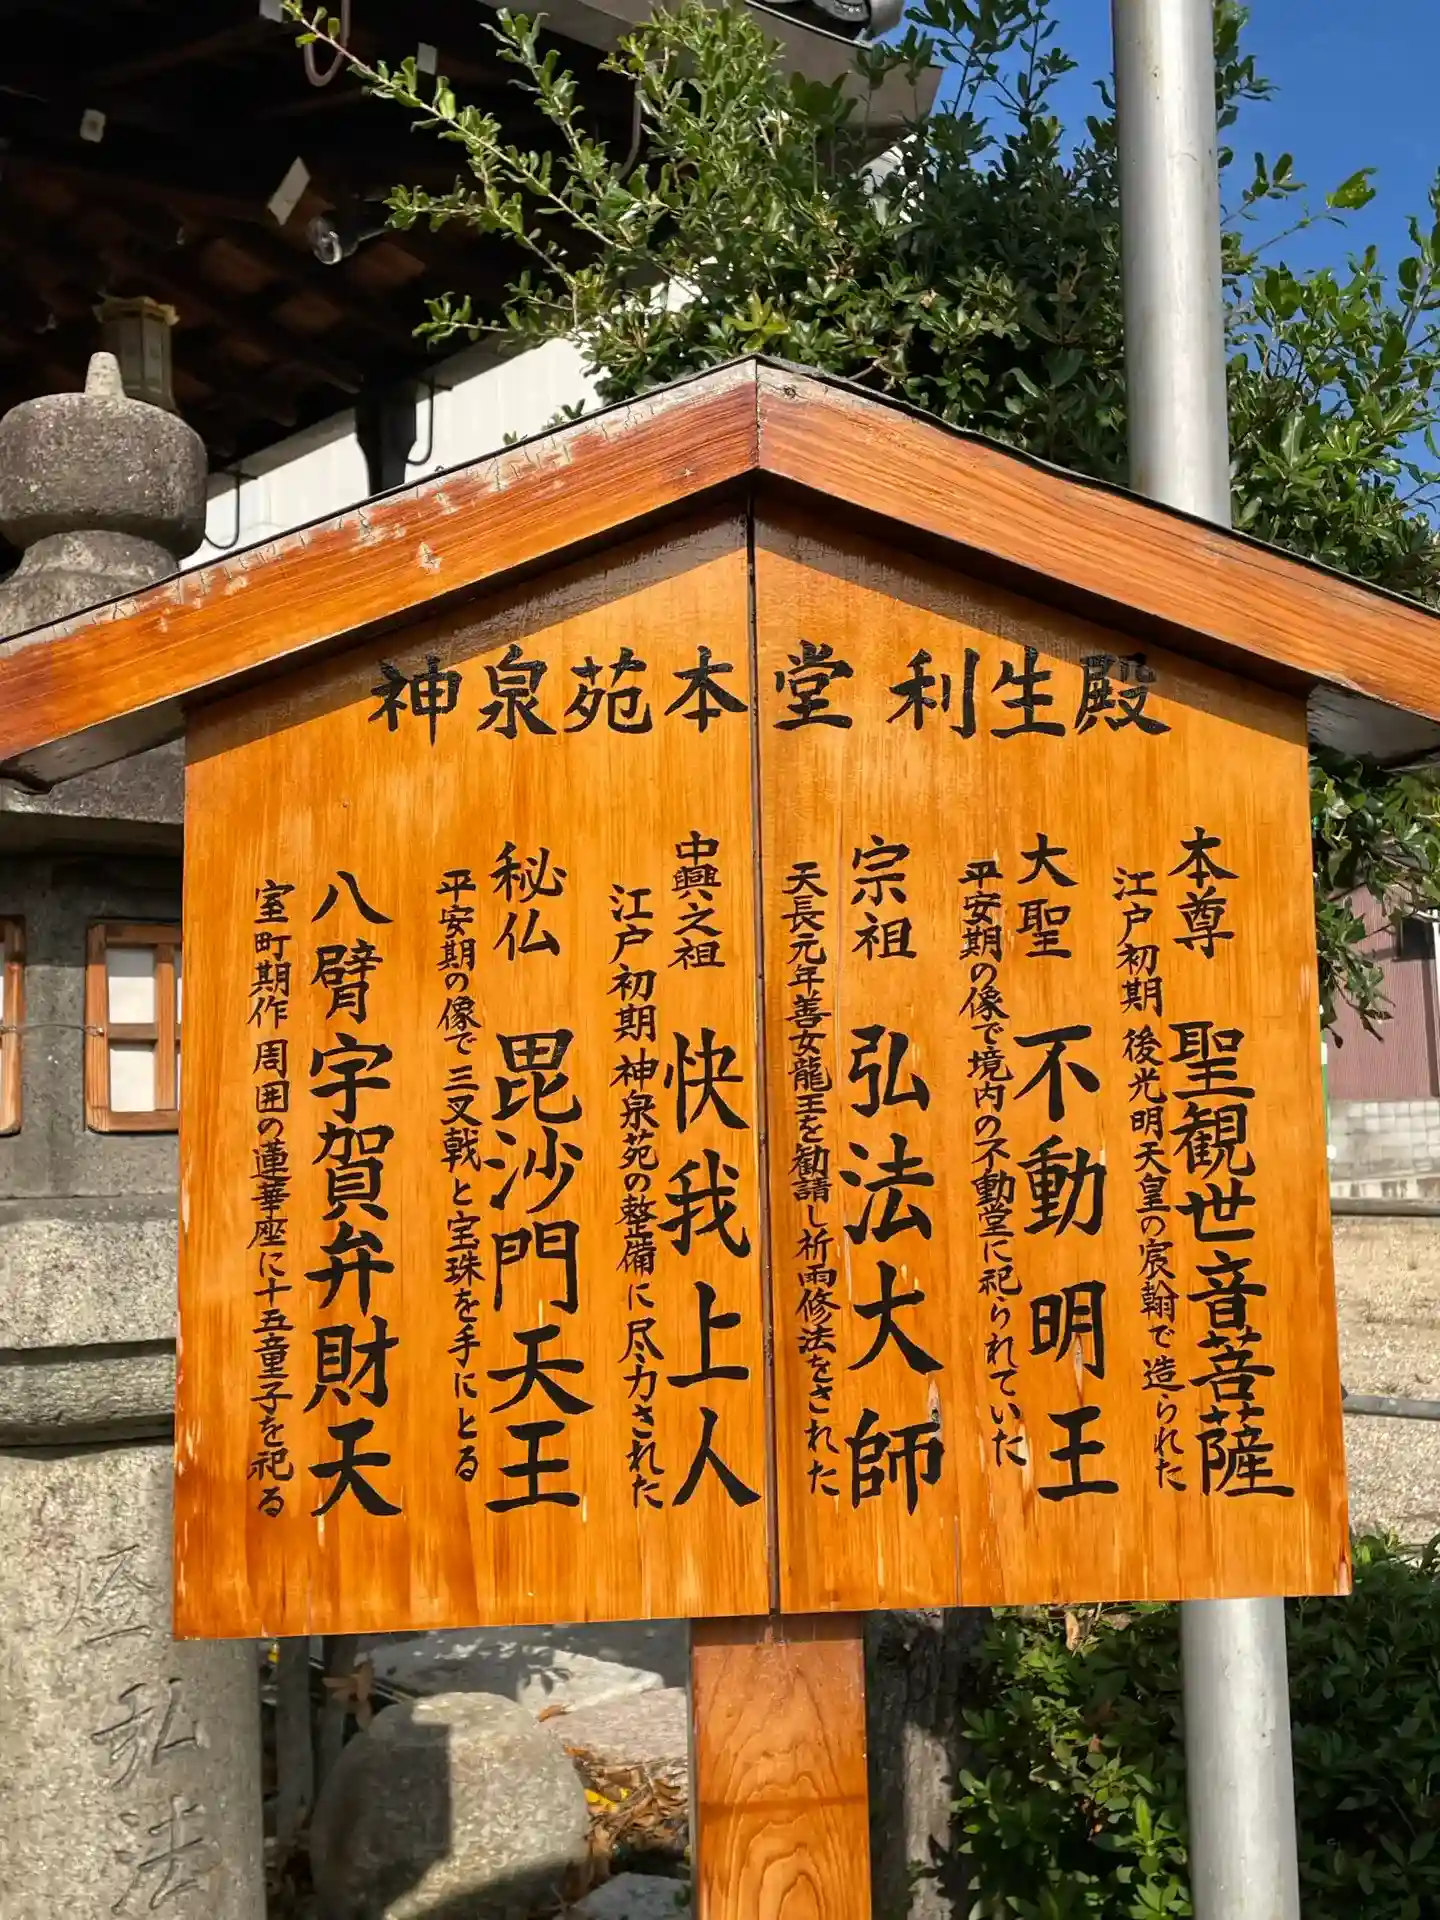 神泉苑本堂 利生殿
本尊 聖観世音菩薩
江戸初期 後光明天皇の宸翰で造られた
大聖 不動明王
平安期の像で境内の不動堂に祀られていた
宗祖 弘法大師
天長元年善女龍王を勧請し祈雨修法をされた
中興之祖 快我上人
江戸初期 神泉苑の整備に尽力された
秘仏 毘沙門天王
平安期の像で三叉戟と宝珠を手にとる
八臂宇賀弁財天
室町期作 周囲の蓮華座に十五童子を祀る
弘法